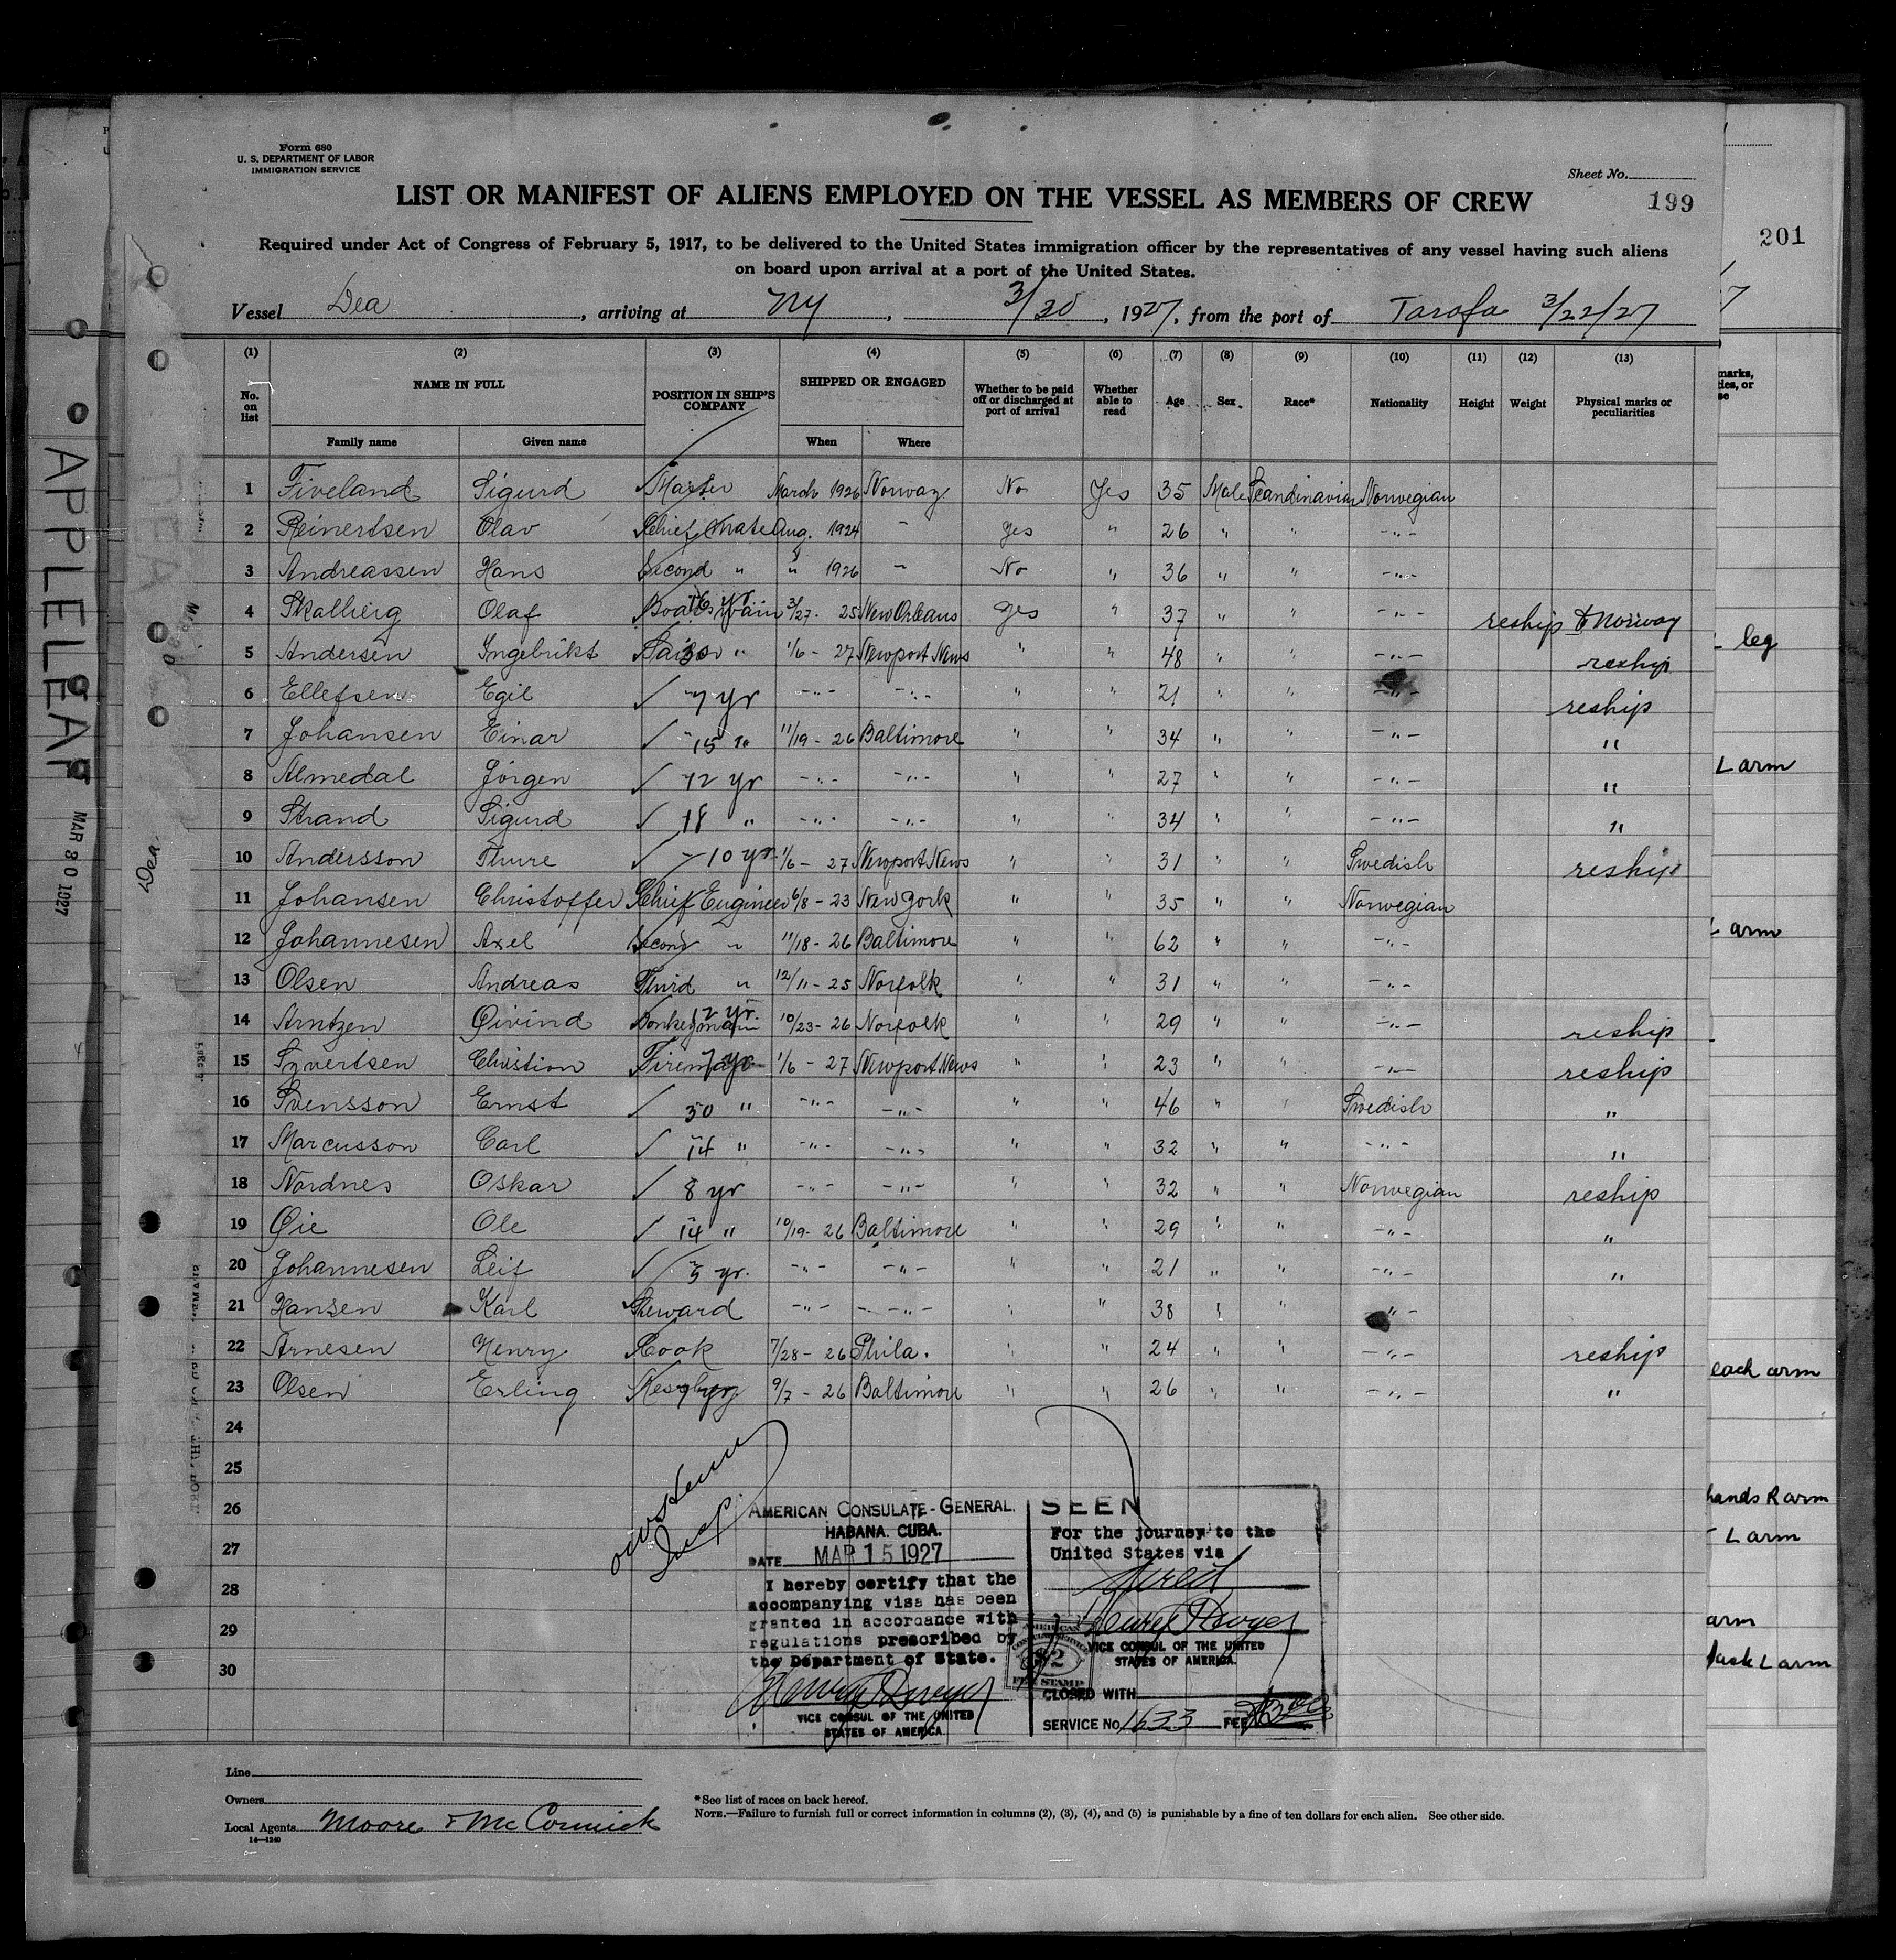 Form 680
U. S. DEPARTMENT OF LABOR
IMMIGRATION SERVICE
Sheet No.
199
201
LIST OR MANIFEST OF ALIENS EMPLOYED ON THE VESSEL AS MEMBERS OF CREW
Required under Act of Congress of February 5, 1917, to be delivered to the United States immigration officer by the representatives of any vessel having such aliens
on board upon arrival at a port of the United States.
Vessel Dea, arriving at NY, 3/30, 1927, from the port of Tarafa 3/22/27
(1) (2) (3) (4) (5) (6) (7) (8) (9) (10) (11) (12) (13)
No. on list NAME IN FULL Family name Given name POSITION IN SHIP'S COMPANY SHIPPED OR ENGAGED When Where Whether to be paid off or discharged at port of arrival Whether able to read Age Sex Race* Nationality Height Weight Physical marks or peculiarities
1 Fiveland Sigurd Master March 1926 Norway No Yes 35 Male Scandinavian Norwegian
2 Reinertsen Olav Chief Mate Aug. 1924 " yes " 26 " " -"-
3 Andreassen Hans Second " " 1926 " No " 36 " " -"-
4 Skalberg Olaf Boatswain 3/27 - 25 New Orleans yes " 37 " " -"- reship to Norway
5 Andersen Ingebrikt Sailor 1/6 - 27 Newport News " " 48 " " -"- reship
6 Ellefsen Egil 7 yr -"- -"- " " 21 " " -"- reship
7 Johansen Einar 15 " 11/19 - 26 Baltimore " " 34 " " -"- "
8 Almedal Jörgen 12 yr -"- -"- " " 27 " " -"- "
9 Strand Sigurd 18 " -"- -"- " " 34 " " -"- "
10 Andersson Thure 10 yr. 1/6 - 27 Newport News " " 31 " " Swedish reship
11 Johansen Christoffer Chief Engineer 6/8 - 23 New York " " 35 " " Norwegian
12 Johannesen Axel Second " 11/18 - 26 Baltimore " " 62 " " -"-
13 Olsen Andreas Third " 12/11 - 25 Norfolk " " 31 " " -"-
14 Arntzen Øivind Donkeyman 12 yr. 10/23 - 26 Norfolk " " 29 " " -"- reship
15 Syvertsen Christion Fireman 7 yr 1/6 - 27 Newport News " " 23 " " -"- reship
16 Svensson Ernst 30 " -"- -"- " " 46 " " Swedish "
17 Marcusson Carl 14 " -"- -"- " " 32 " " -"- "
18 Nordnes Oskar 8 yr -"- -"- " " 32 " " Norwegian reship
19 Øie Ole 14 " 10/19 - 26 Baltimore " " 29 " " -"- "
20 Johannesen Leif 5 yr. -"- -"- " " 21 " " -"- "
21 Hansen Karl Steward -"- -"- " " 38 " " -"-
22 Arnesen Henry Cook 7/28 - 26 Phila. " " 24 " " -"- reship
23 Olsen Erling 9/7 - 26 Baltimore " " 26 " " -"- "
24
25
26
27
28
29
30
Insp.
AMERICAN CONSULATE-GENERAL.
HABANA. CUBA.
DATE MAR 15 1927
I hereby certify that the
accompanying visa has been
granted in accordance with
regulations prescribed by
the Department of State.
VICE CONSUL OF THE UNITED
STATES OF AMERICA.
SEEN
For the journey to the
United States via
direct
VICE CONSUL OF THE UNITED
STATES OF AMERICA.
AMERICAN CONSULAR SERVICE
$2
FEE STAMP
CLOSED WITH
SERVICE No. 1633 FEE
Line
Owners
Local Agents Moore & McCormick
14—1240
*See list of races on back hereof.
NOTE.—Failure to furnish full or correct information in columns (2), (3), (4), and (5) is punishable by a fine of ten dollars for each alien. See other side.
APPLELEAF
MAR 30 1927
Dea.
marks,
ties, or
se
leg
L arm
arm
each arm
hands R arm
L arm
arm
L arm